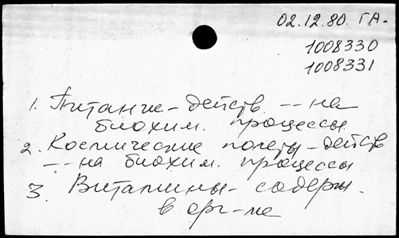 02.12.80. ГА.
1008330
1008331
1. Питание - действ. -- на
биохим. процессы
2. Космические полеты - действ
-- на биохим. процессы
3. Витамины - содерж.
в орг-ме